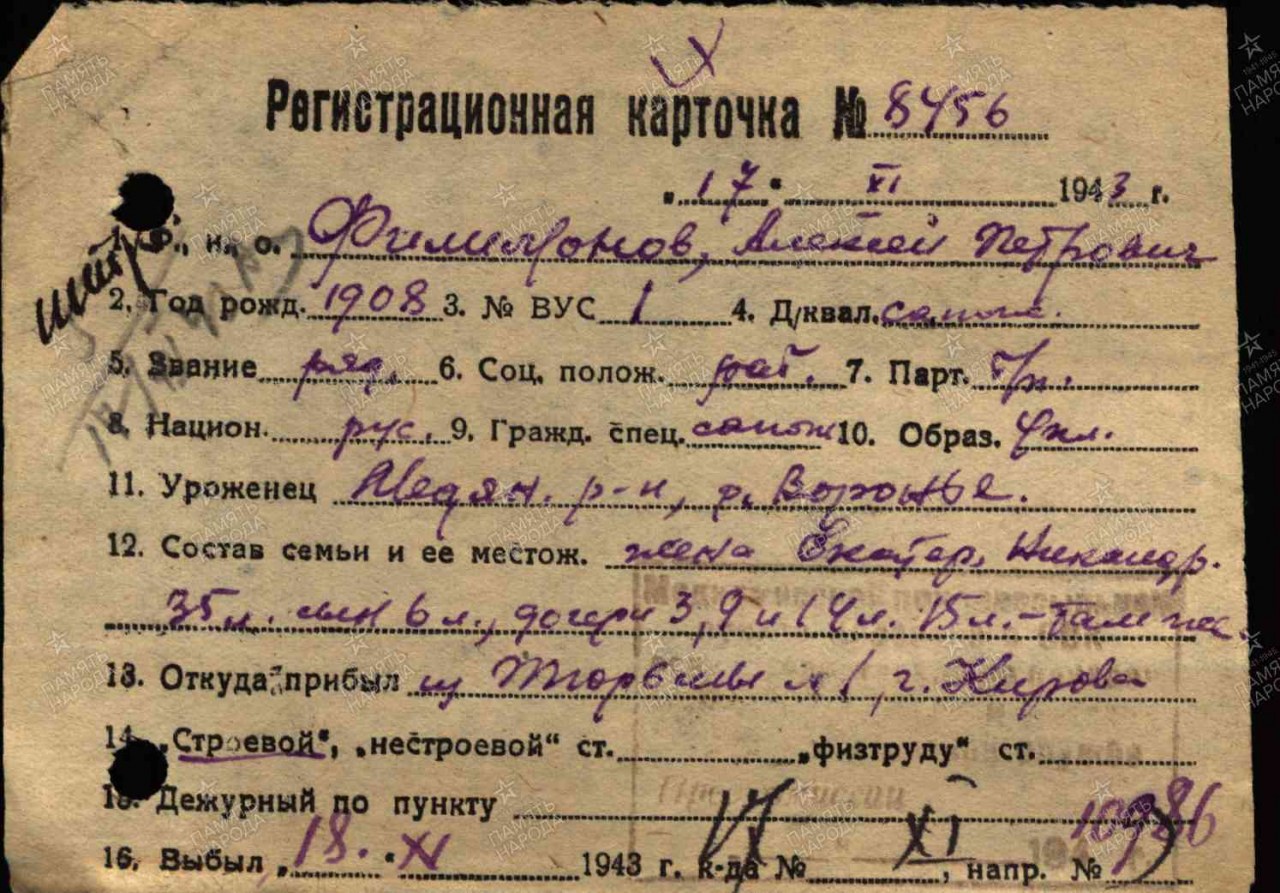 Регистрационная карточка № 8456
„17“ XI 1943 г.
Ф., и., о. Филимонов, Алексей Петрович
2. Год рожд. 1908 3. № ВУС 1 4. Д/квал. сапож.
5. Звание ряд. 6. Соц. полож. раб. 7. Парт. б/п.
8. Национ. рус. 9. Гражд. спец. сапож 10. Образ. 4 кл.
11. Уроженец Медян. р-н, д. Воронье.
12. Состав семьи и ее местож. жена Екатер. Никандр.
35 л. сын 6 л., дочери 3, 9 и 14 л. 15 л. - там же.
13. Откуда прибыл из Тюрьмы №1, г. Кирова
14. „Строевой“, „нестроевой“ ст. „физтруду“ ст.
15. Дежурный по пункту
16. Выбыл „18.“ XI 1943 г. к-да № XI, напр. №
ПАМЯТЬ НАРОДА